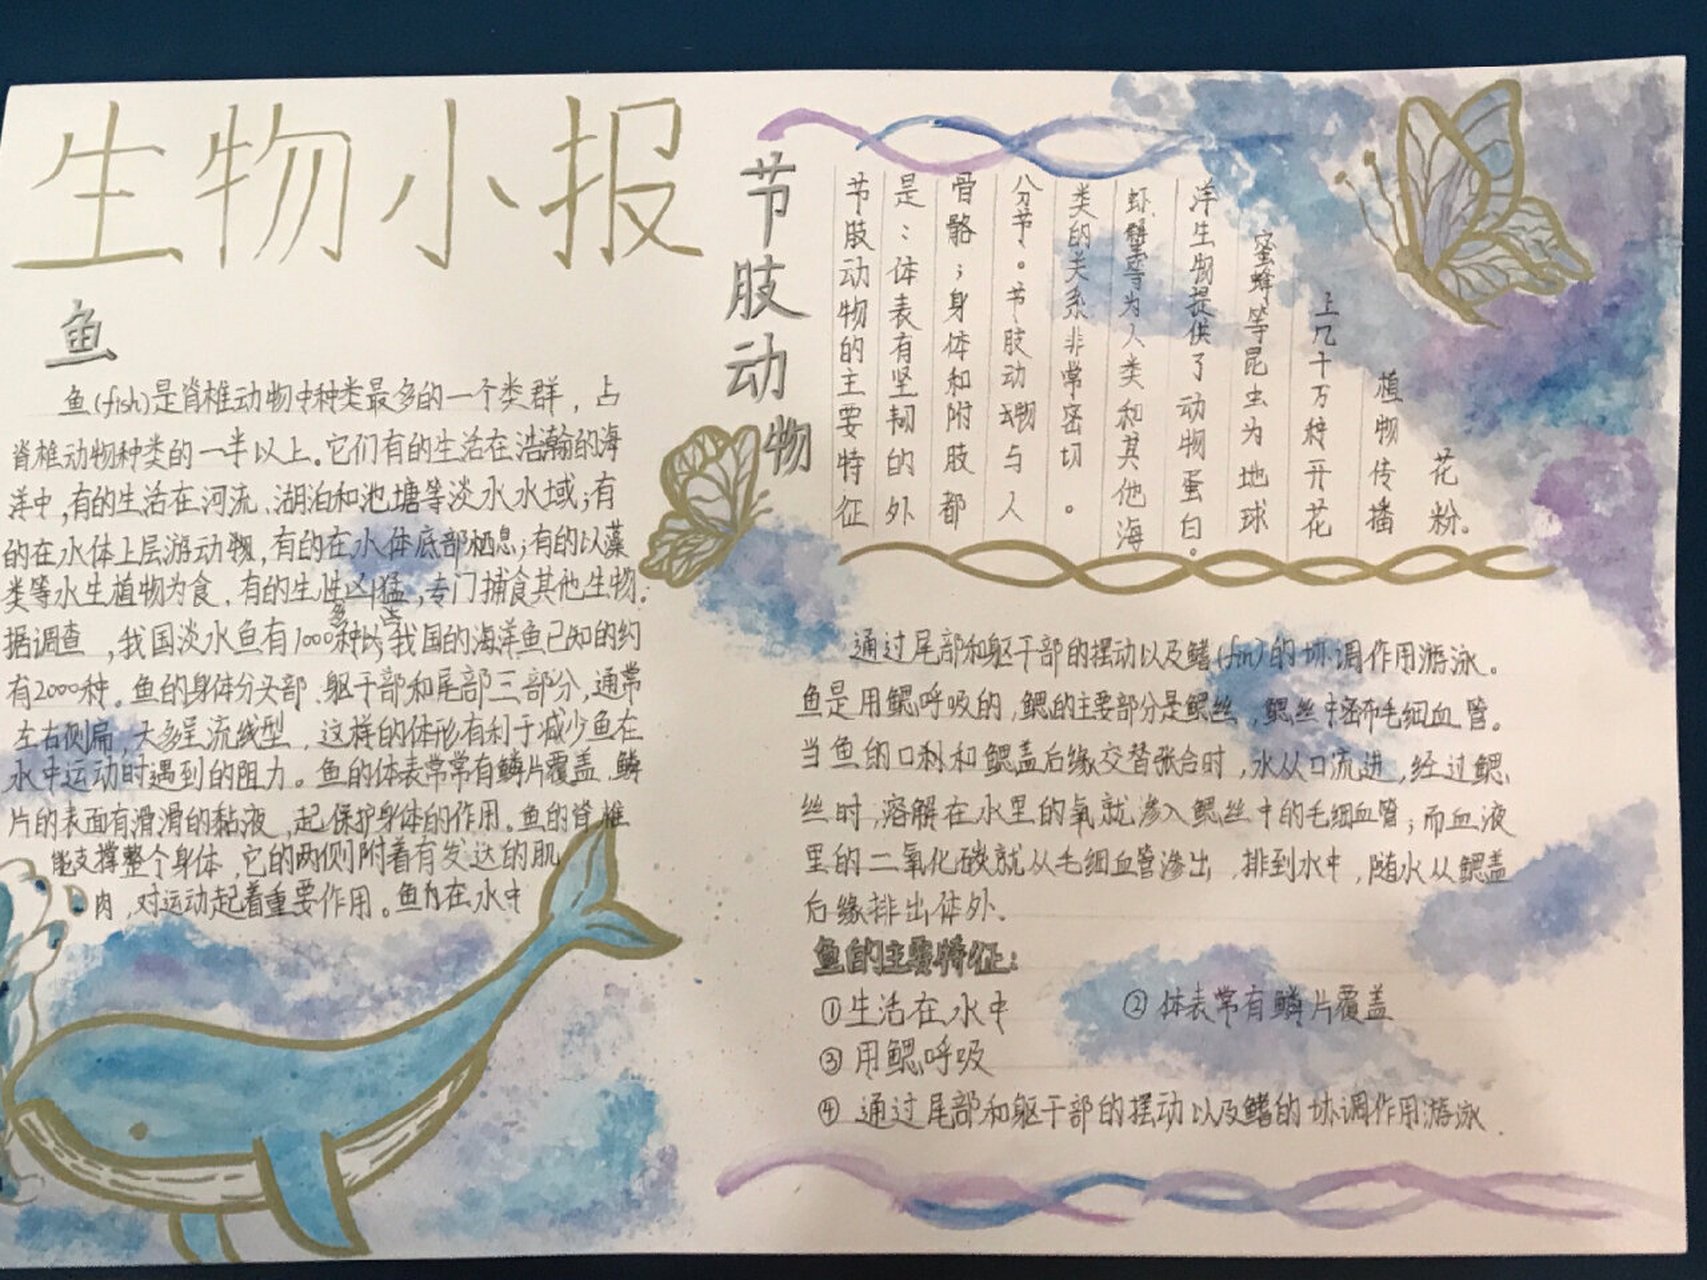 生物小报
鱼
鱼(fish)是脊椎动物中种类最多的一个类群，占
脊椎动物种类的一半以上。它们有的生活在浩瀚的海
洋中，有的生活在河流、湖泊和池塘等淡水水域；有
的在水体上层游动，有的在水体底部栖息；有的以藻
类等水生植物为食，有的生性凶猛，专门捕食其他生物。
据调查，我国淡水鱼有1000种，我国的海洋鱼已知的约
有2000种。鱼的身体分头部、躯干部和尾部三部分，通常
左右侧扁，大多呈流线型，这样的体形有利于减少鱼在
水中运动时遇到的阻力。鱼的体表常常有鳞片覆盖，鳞
片的表面有滑滑的黏液，起保护身体的作用。鱼的脊椎
能支撑整个身体，它的两侧附着有发达的肌
肉，对运动起着重要作用。鱼在水中
通过尾部和躯干部的摆动以及鳍(fin)的协调作用游泳。
鱼是用鳃呼吸的，鳃的主要部分是鳃丝，鳃丝中密布毛细血管。
当鱼的口和鳃盖后缘交替张合时，水从口流进，经过鳃
丝时，溶解在水里的氧就渗入鳃丝中的毛细血管；而血液
里的二氧化碳就从毛细血管渗出，排到水中，随水从鳃盖
后缘排出体外。
鱼的主要特征：
①生活在水中 ②体表常有鳞片覆盖
③用鳃呼吸
④通过尾部和躯干部的摆动以及鳍的协调作用游泳.
节肢动物
节肢动物的主要特征
是：体表有坚韧的外
骨骼；身体和附肢都
分节。节肢动物与人
类的关系非常密切。
虾、蟹等为人类和其他海
洋生物提供了动物蛋白。
蜜蜂等昆虫为地球
上几十万种开花
植物传播
花粉。